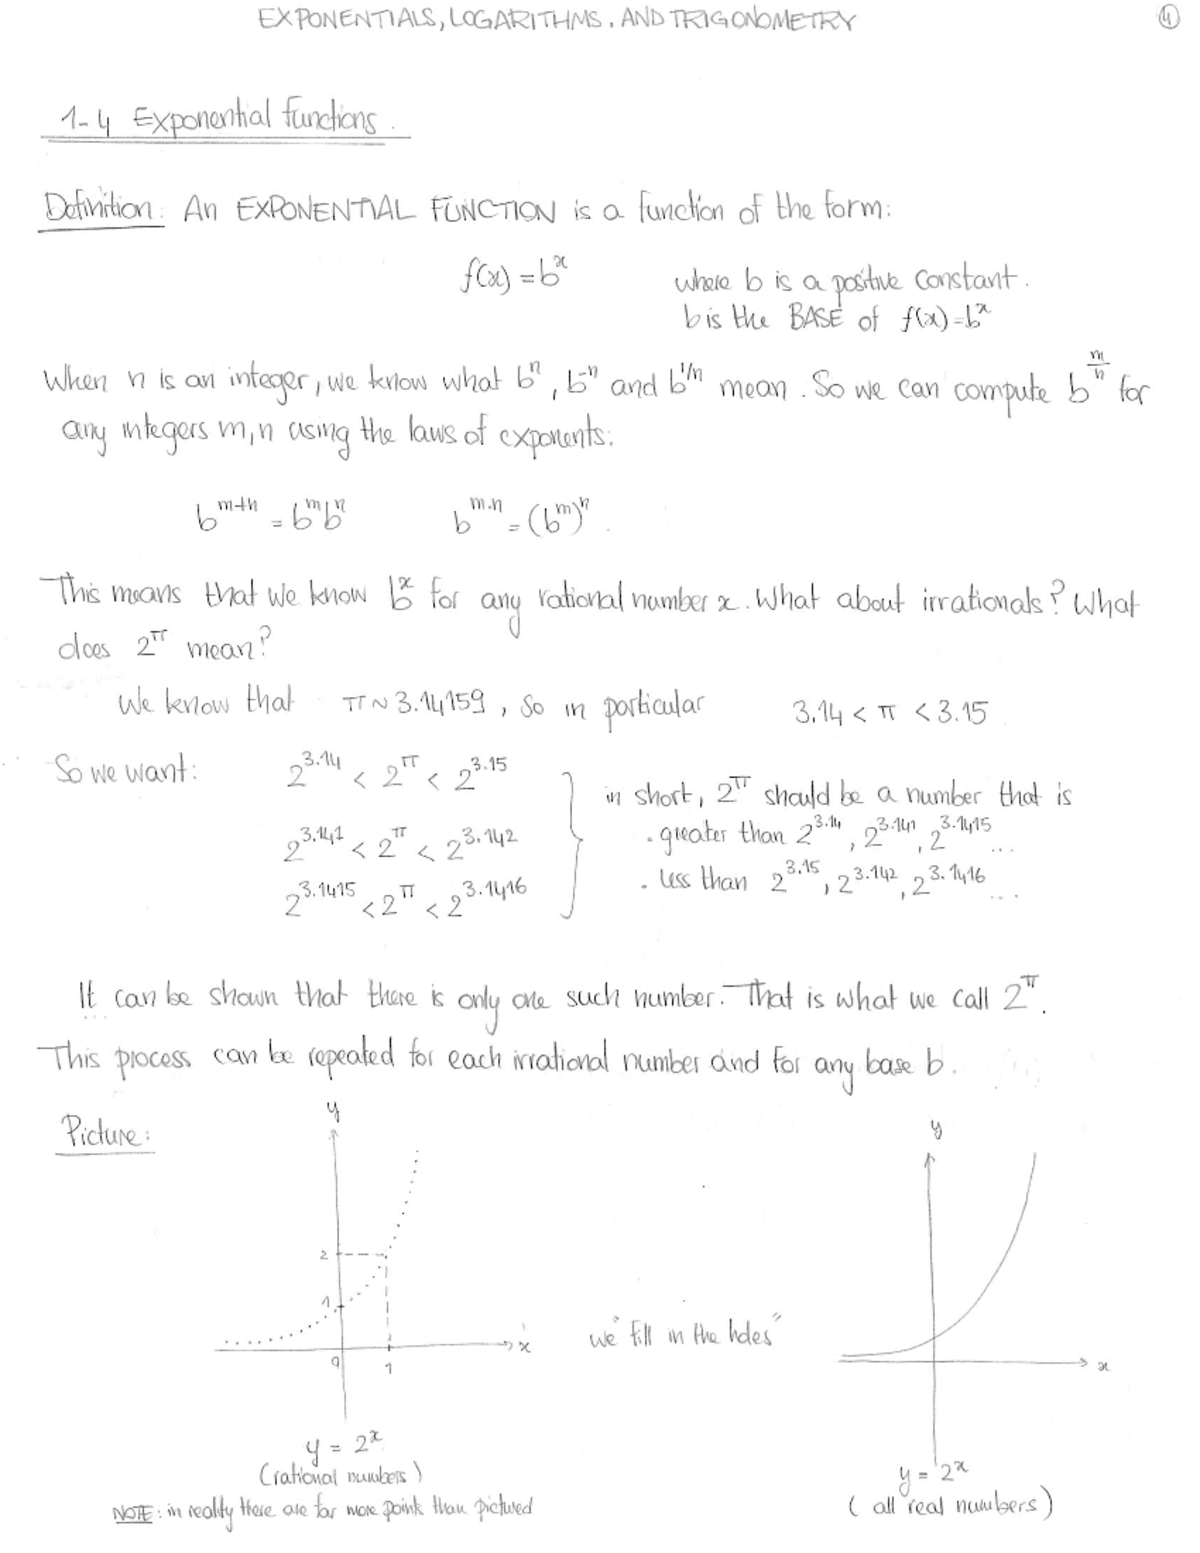 EXPONENTIALS, LOGARITHMS, AND TRIGONOMETRY
1-4 Exponential functions.
Definition: An EXPONENTIAL FUNCTION is a function of the form:
f(x) = b^x where b is a positive constant.
b is the BASE of f(x)=b^x
When n is an integer, we know what b^n, b^-n and b^1/n mean. So we can compute b^m/n for
any integers m,n using the laws of exponents:
b^m+n = b^m b^n b^m.n = (b^m)^n.
This means that we know b^x for any rational number x. What about irrationals? What
does 2^π mean?
We know that π ~ 3.14159, so in particular 3.14 < π < 3.15
So we want: 2^3.14 < 2^π < 2^3.15
2^3.141 < 2^π < 2^3.142
2^3.1415 < 2^π < 2^3.1416
in short, 2^π should be a number that is
. greater than 2^3.14, 2^3.141, 2^3.1415 ...
. less than 2^3.15, 2^3.142, 2^3.1416 ...
It can be shown that there is only one such number. That is what we call 2^π.
This process can be repeated for each irrational number and for any base b.
Picture:
y
2
1
0
1
x
y = 2^x
(rational numbers)
NOTE: in reality there are far more points than pictured
we "fill in the holes"
y
x
y = 2^x
(all real numbers)